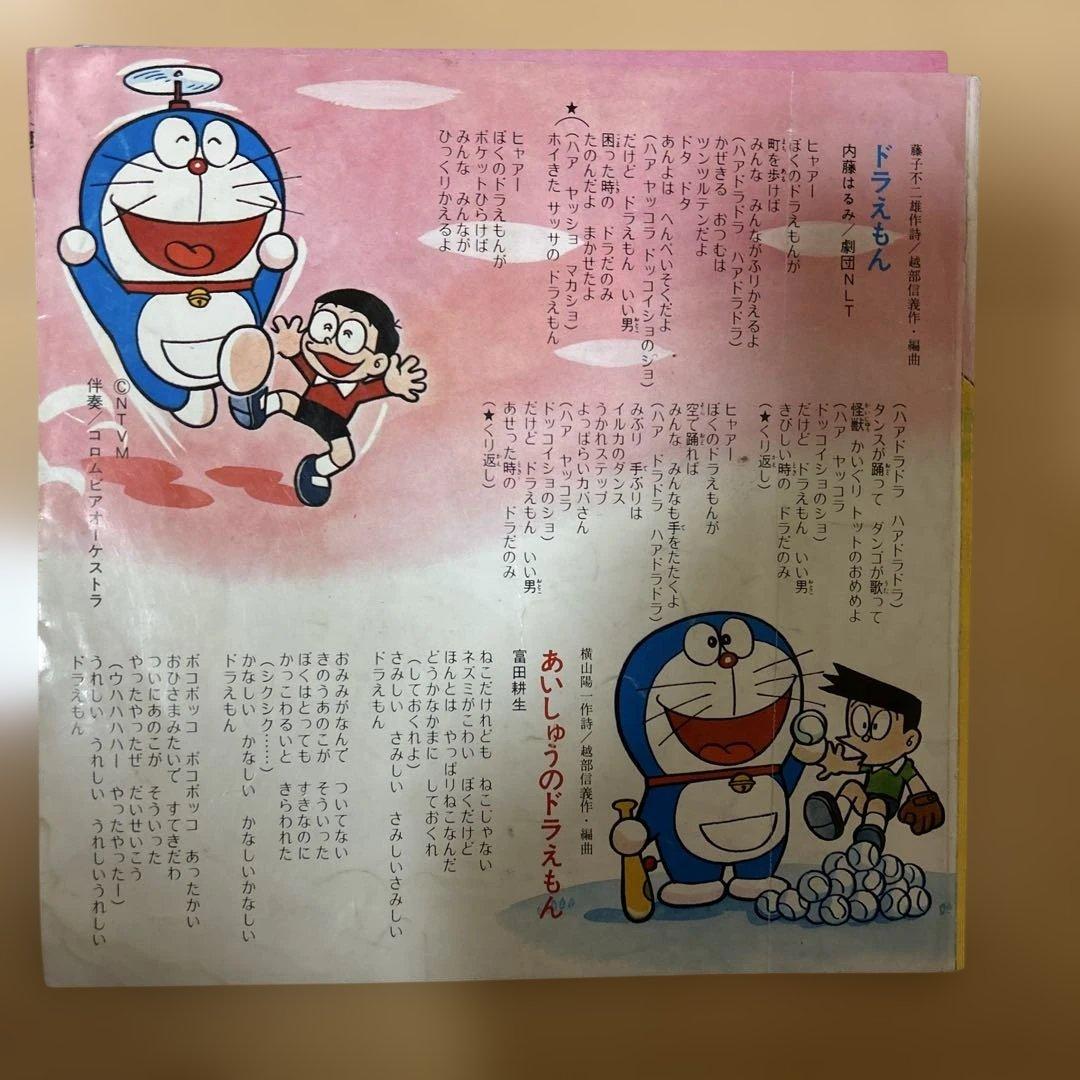 ドラえもん
藤子不二雄作詩/越部信義作・編曲
内藤はるみ/劇団NLT
ヒャアー
ぼくのドラえもんが
町を歩けば
みんな みんながふりかえるよ
(ハアドラドラ ハアドラドラ)
かぜきる おつむは
ツンツルテンだよ
ドタ ドタ
あんよは へんぺいそくだよ
(ハア ヤッコラ ドッコイショのショ)
だけど ドラえもん いい男
困った時の ドラだのみ
★(たのんだよ まかせたよ
(ハア ヤッショ マカショ)
ホイきた サッサの ドラえもん
ヒャアー
ぼくのドラえもんが
ポケットひらけば
みんな みんなが
ひっくりかえるよ
(ハアドラドラ ハアドラドラ)
タンスが踊って ダンゴが歌って
怪獣 かいぐり トットのおめめよ
(ハア ヤッコラ
ドッコイショのショ)
だけど ドラえもん いい男
きびしい時の ドラだのみ
(★くり返し)
ヒャアー
ぼくのドラえもんが
空で踊れば
みんな みんなも手をたたくよ
(ハア ドラドラ ハアドラドラ)
みぶり 手ぶりは
イルカのダンス
うかれステップ
よっぱらいカバさん
(ハア ヤッコラ
ドッコイショのショ)
だけど ドラえもん いい男
あせった時の ドラだのみ
(★くり返し)
©NTVM
伴奏/コロムビアオーケストラ
横山陽一作詩/越部信義作・編曲
あいしゅうのドラえもん
富田耕生
ねこだけれども ねこじゃない
ネズミがこわい ぼくだけど
ほんとは やっぱりねこなんだ
どうかなかまに しておくれ
(しておくれよ)
さみしい さみしい さみしいさみしい
ドラえもん
おみみがなんで ついてない
きのうあのこが そういった
ぼくはとっても すきなのに
かっこわるいと きらわれた
(シクシク……)
かなしい かなしい かなしいかなしい
ドラえもん
ポコポッコ ポコポッコ あったかい
おひさまみたいで すてきだわ
ついにあのこが そういった
やったやったぜ だいせいこう
(ウハハハハー やったやったー)
うれしい うれしい うれしいうれしい
ドラえもん